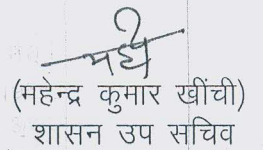 (महेन्द्र कुमार खींची)
शासन उप सचिव